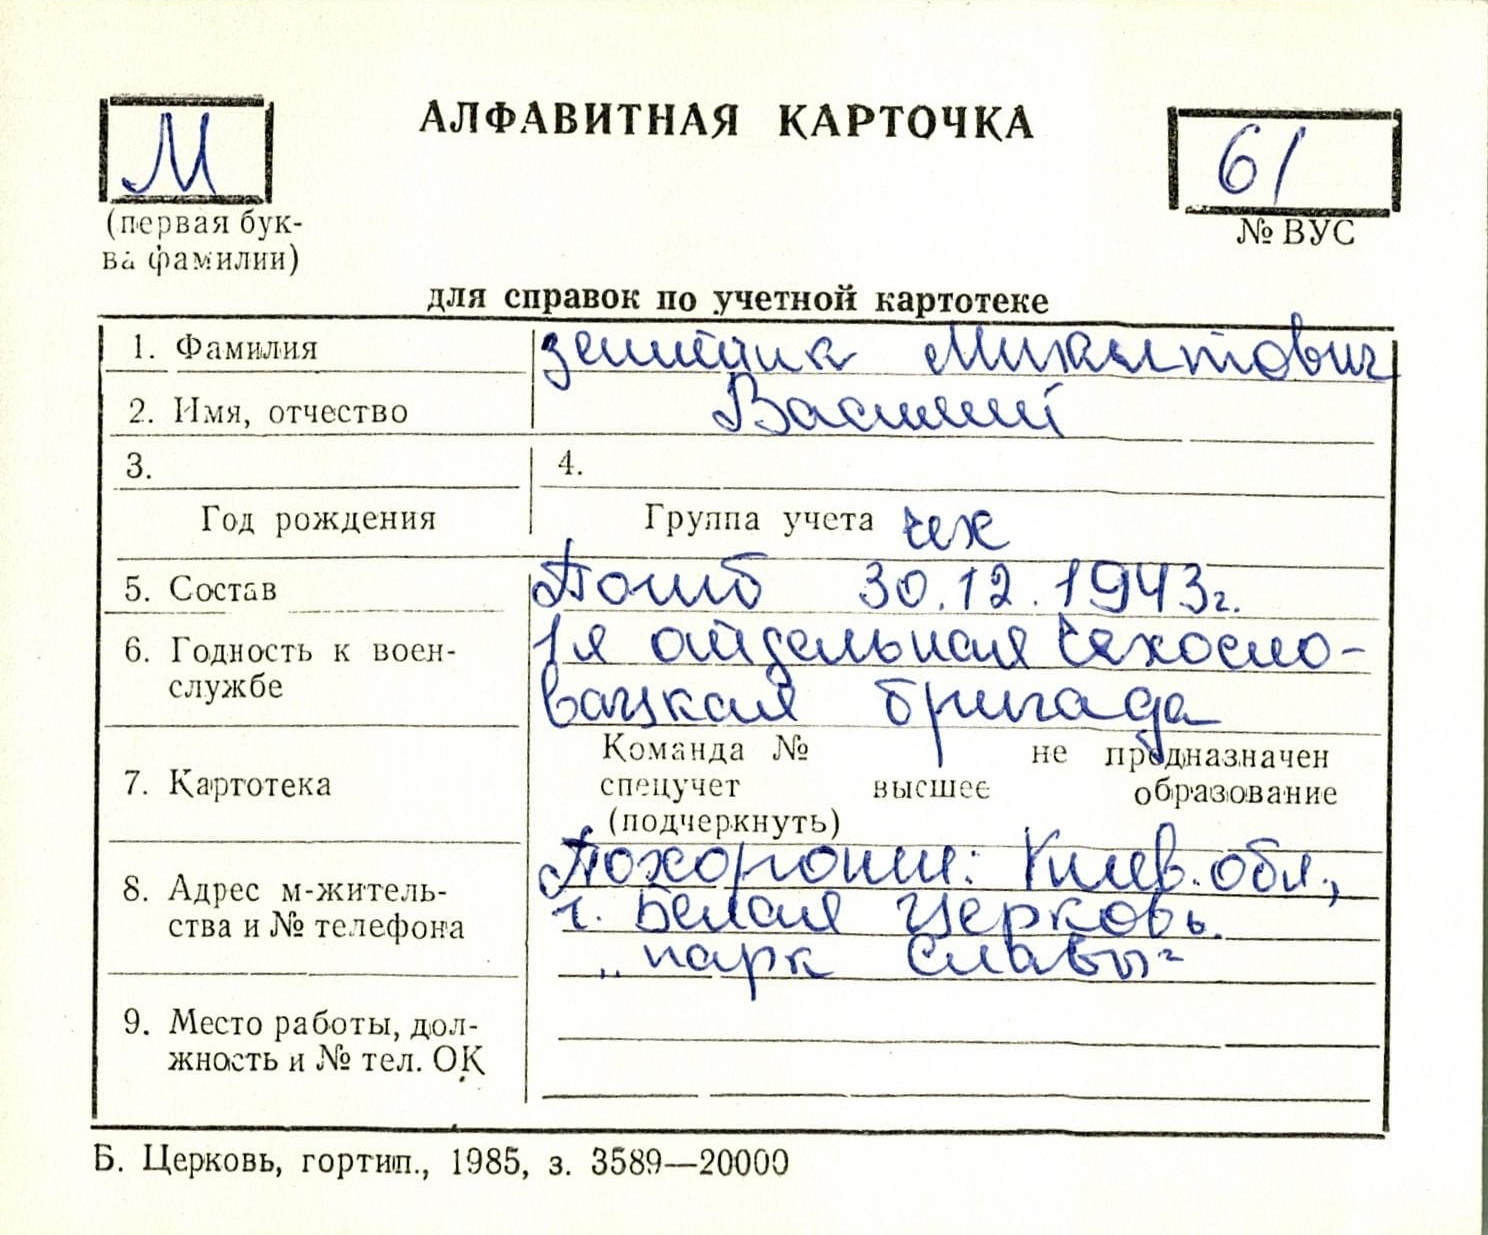 АЛФАВИТНАЯ КАРТОЧКА
М
61
(первая бук-
ва фамилии)
№ ВУС
для справок по учетной картотеке
1. Фамилия
Михалтович
2. Имя, отчество
Василий
3.
4.
Год рождения
Группа учета чех
5. Состав
Погиб 30.12.1943г.
6. Годность к воен-
службе
1я отдельная Чехосло-
вацкая бригада
7. Картотека
Команда № не предназначен
спецучет высшее образование
(подчеркнуть)
8. Адрес м-житель-
ства и № телефона
Похоронен: Киев. обл.,
г. Белая Церковь.
„парк Славы"
9. Место работы, дол-
жность и № тел. ОК
Б. Церковь, гортип., 1985, з. 3589—20000